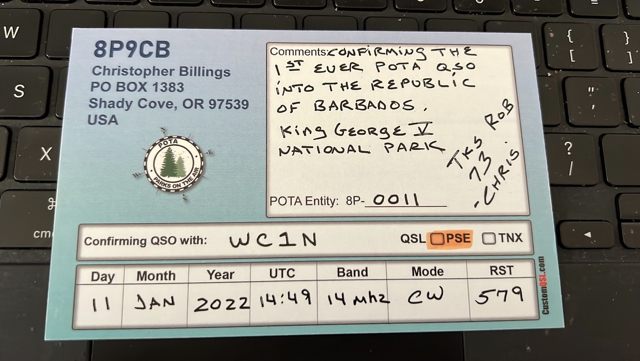 8P9CB
Christopher Billings
PO BOX 1383
Shady Cove, OR 97539
USA
POTA
PARKS ON THE AIR
Comments: CONFIRMING THE
1ST EVER POTA QSO
INTO THE REPUBLIC
OF BARBADOS.
KING GEORGE V
NATIONAL PARK
TKS ROB
73
-CHRIS
POTA Entity: 8P-0011
Confirming QSO with: WC1N QSL PSE TNX
Day Month Year UTC Band Mode RST
11 JAN 2022 14:49 14 Mhz CW 579
CustomQSL.com
W
S
X
cm
{
[
}
]
"
'
?
/